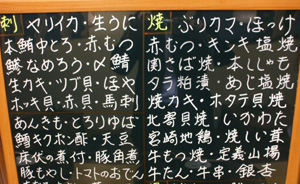 刺 ヤリイカ・生うに
本鯖中とろ・赤むつ
鯵なめろう・〆鯖
生カキ・ツブ貝・ほや
ホッキ貝・赤貝・馬刺
あんきも・とろりゆば
鯛キクポン酢・天豆
床伏の煮付・豚角煮
豚もやし・トマトのおでん
焼 ぶりカマ・ほっけ
赤むつ・キンキ塩焼
関さば焼・本ししゃも
タラ粕漬・あじ塩焼
焼カキ・ホタテ貝焼
北寄貝焼・いかわた
宮崎地鶏・焼しい茸
牛もつ焼・定義山揚
牛たん・牛串・銀杏